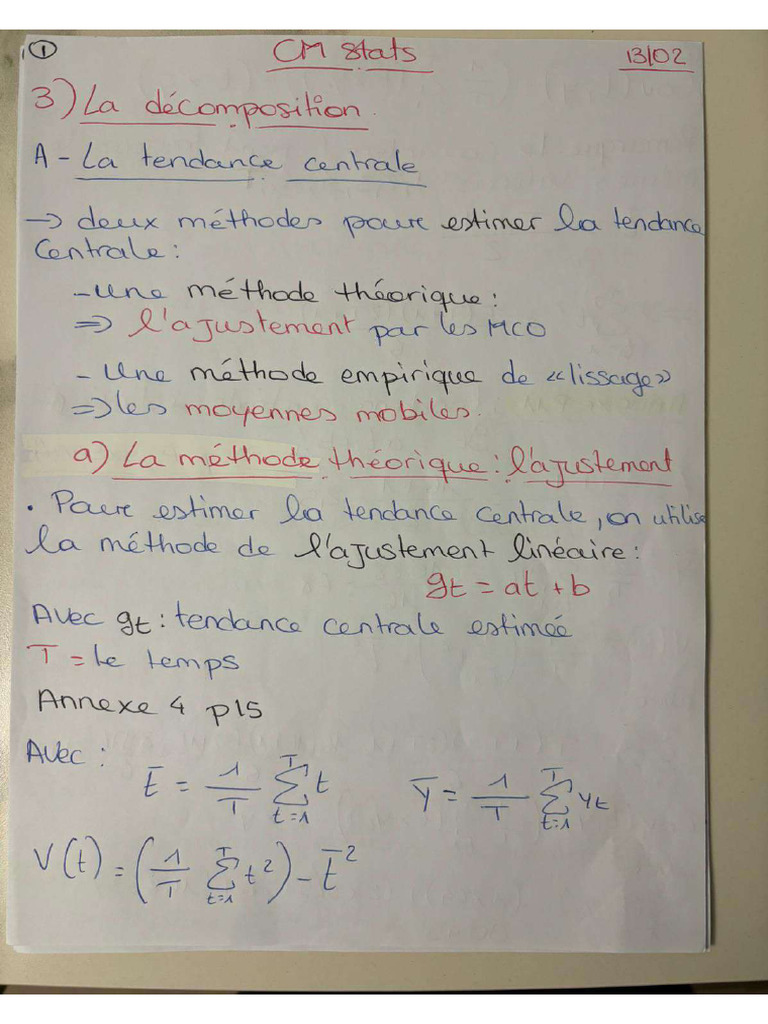 ① CM Stats 13/02
3) La décomposition
A - La tendance centrale
→ deux méthodes pour estimer la tendance
Centrale :
- une méthode théorique :
⇒ l'ajustement par les MCO
- Une méthode empirique de «lissage»
⇒ les moyennes mobiles.
a) La méthode théorique : l'ajustement
• Pour estimer la tendance centrale, on utilise
la méthode de l'ajustement linéaire :
gt = at + b
Avec gt : tendance centrale estimée
T = le temps
Annexe 4 p15
Avec :
t̄ = 1/T Σ_{t=1}^{T} t Ȳ = 1/T Σ_{t=1}^{T} yt
V(t) = (1/T Σ_{t=1}^{T} t²) - t̄²